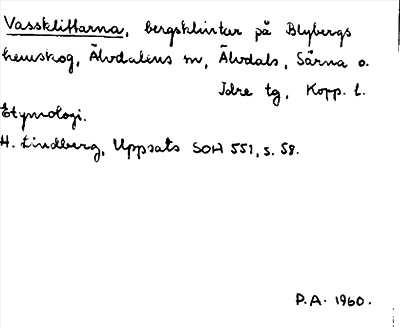 Vassklittarna, bergsklintar på Blybergs
hemskog, Älvdalens sn, Älvdals, Särna o.
Idre tg, Kopp. l.
Etymologi.
H. Lindberg, Uppsats SOH 551, s. 58.
P.A. 1960.